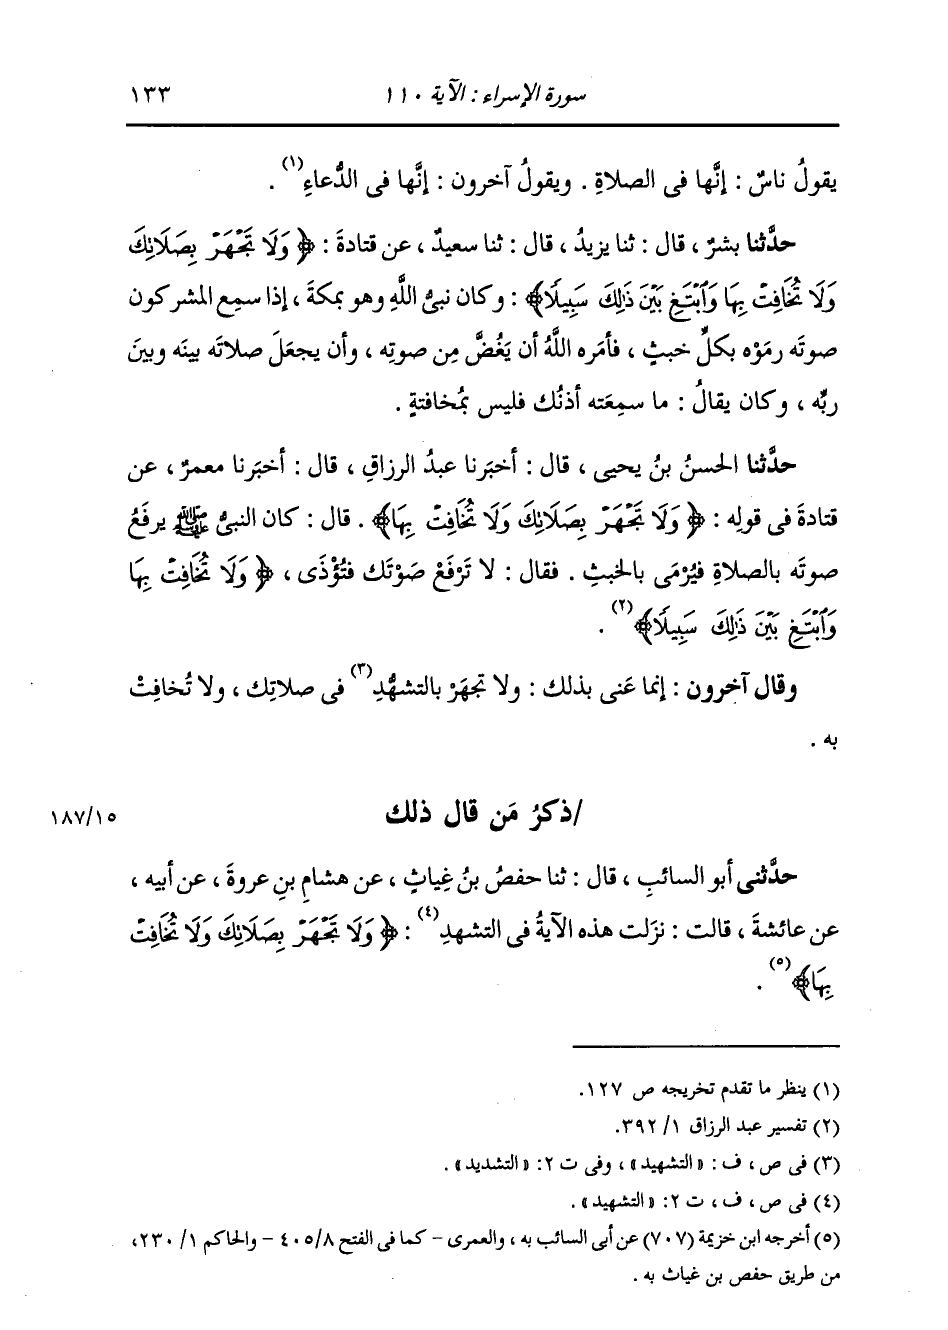 سورة الإسراء : الآية ١١٠ ١٣٣
يقولُ ناسٌ : إنَّها فى الصلاةِ . ويقولُ آخرون : إنَّها فى الدُّعاءِ(١) .
حدَّثنا بشرٌ ، قال : ثنا يزيدُ ، قال : ثنا سعيدٌ ، عن قتادةَ : ﴿ وَلَا تَجْهَرْ بِصَلَاتِكَ
وَلَا تُخَافِتْ بِهَا وَٱبْتَغِ بَيْنَ ذَٰلِكَ سَبِيلًا﴾ : وكان نبىُّ اللَّهِ وهو بمكةَ ، إذا سمِع المشركون
صوتَه رمَوْه بكلِّ خبثٍ ، فأمَره اللَّهُ أن يَغُضَّ مِن صوتِه ، وأن يجعَلَ صلاتَه بينَه وبينَ
ربِّه ، وكان يقالُ : ما سمِعَته أذنُك فليس بمُخافتةٍ .
حدَّثنا الحسنُ بنُ يحيى ، قال : أخبَرنا عبدُ الرزاقِ ، قال : أخبَرنا معمرٌ ، عن
قتادةَ فى قولِه : ﴿ وَلَا تَجْهَرْ بِصَلَاتِكَ وَلَا تُخَافِتْ بِهَا﴾ . قال : كان النبىُّ ﷺ يرفَعُ
صوتَه بالصلاةِ فيُرْمَى بالخبثِ . فقال : لا تَرْفَعْ صَوْتَك فتُؤْذَى ، ﴿ وَلَا تُخَافِتْ بِهَا
وَٱبْتَغِ بَيْنَ ذَٰلِكَ سَبِيلًا﴾(٢) .
وقال آخرون : إنما عَنى بذلك : ولا تجهَرْ بالتشهُّدِ(٣) فى صلاتِك ، ولا تُخافِتْ
به .
/ذكرُ مَن قال ذلك ١٨٧/١٥
حدَّثنى أبو السائبِ ، قال : ثنا حفصُ بنُ غِياثٍ ، عن هشامِ بنِ عروةَ ، عن أبيه ،
عن عائشةَ ، قالت : نزَلت هذه الآيةُ فى التشهدِ(٤) : ﴿ وَلَا تَجْهَرْ بِصَلَاتِكَ وَلَا تُخَافِتْ
بِهَا﴾(٥) .
(١) ينظر ما تقدم تخريجه ص ١٢٧.
(٢) تفسير عبد الرزاق ١/ ٣٩٢.
(٣) فى ص ، ف : «التشهيد» ، وفى ت ٢: «التشديد» .
(٤) فى ص ، ف ، ت ٢: «التشهيد» .
(٥) أخرجه ابن خزيمة (٧٠٧) عن أبى السائب به ، والعمرى - كما فى الفتح ٨/ ٤٠٥ - والحاكم ١/ ٢٣٠،
من طريق حفص بن غياث به .